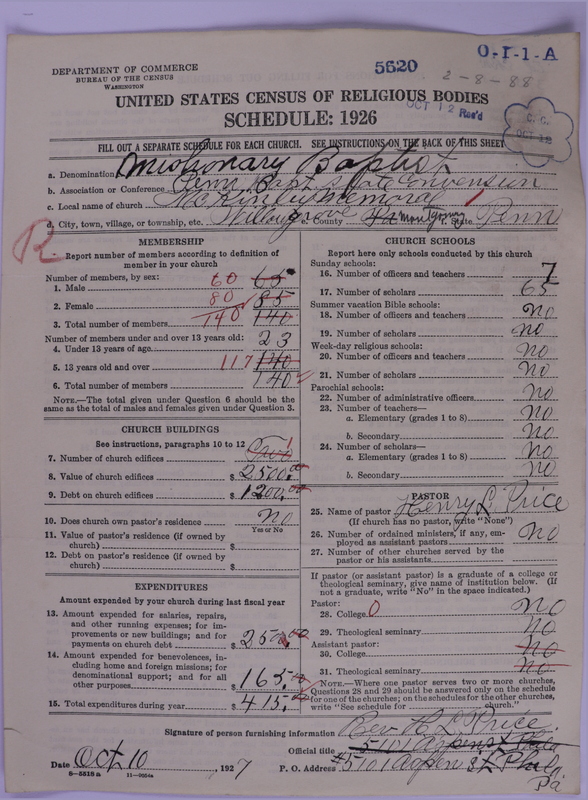 DEPARTMENT OF COMMERCE
BUREAU OF THE CENSUS
WASHINGTON
5620
O-I-1-A
2-8-88
UNITED STATES CENSUS OF RELIGIOUS BODIES
OCT 12 Rec'd
SCHEDULE: 1926
C.C.
OCT 18
FILL OUT A SEPARATE SCHEDULE FOR EACH CHURCH. SEE INSTRUCTIONS ON THE BACK OF THIS SHEET
a. Denomination Missionary Baptist
b. Association or Conference Penn Bapt State Convension
c. Local name of church McKinley Memora
d. City, town, village, or township, etc. Willowgrove e. County Montgomery f. State Penn
R.
MEMBERSHIP
Report number of members according to definition of member in your church
Number of members, by sex:
1. Male 60 65
2. Female 80 85
3. Total number of members 140 140
Number of members under and over 13 years old:
4. Under 13 years of age 23
5. 13 years old and over 117 140
6. Total number of members 140
NOTE.—The total given under Question 6 should be the same as the total of males and females given under Question 3.
CHURCH BUILDINGS
See instructions, paragraphs 10 to 12
7. Number of church edifices 1
8. Value of church edifices $2500.00
9. Debt on church edifices $1200.00
10. Does church own pastor's residence no
Yes or No
11. Value of pastor's residence (if owned by church) $
12. Debt on pastor's residence (if owned by church) $
EXPENDITURES
Amount expended by your church during last fiscal year
13. Amount expended for salaries, repairs, and other running expenses; for improvements or new buildings; and for payments on church debt $250.00
14. Amount expended for benevolences, including home and foreign missions; for denominational support; and for all other purposes $165.00
15. Total expenditures during year $415.00
CHURCH SCHOOLS
Report here only schools conducted by this church
Sunday schools:
16. Number of officers and teachers 7
17. Number of scholars 65
Summer vacation Bible schools:
18. Number of officers and teachers no
19. Number of scholars no
Week-day religious schools:
20. Number of officers and teachers no
21. Number of scholars no
Parochial schools:
22. Number of administrative officers no
23. Number of teachers—
a. Elementary (grades 1 to 8) no
b. Secondary no
24. Number of scholars—
a. Elementary (grades 1 to 8) no
b. Secondary no
PASTOR
25. Name of pastor Henry L. Price
(If church has no pastor, write "None")
26. Number of ordained ministers, if any, employed as assistant pastors no
27. Number of other churches served by the pastor or his assistants
If pastor (or assistant pastor) is a graduate of a college or theological seminary, give name of institution below. (If not a graduate, write "No" in the space indicated.)
Pastor:
28. College 0 no
29. Theological seminary no
Assistant pastor:
30. College no
31. Theological seminary no
NOTE.—Where one pastor serves two or more churches, Questions 28 and 29 should be answered only on the schedule for one of the churches; on the schedules for the other churches, write "See schedule for church."
Signature of person furnishing information Rev. H. L. Price
Official title 5101
Date Oct 10 1927 P. O. Address #5101 Aspen St Phila
Pa
8—5518a 11—9054a